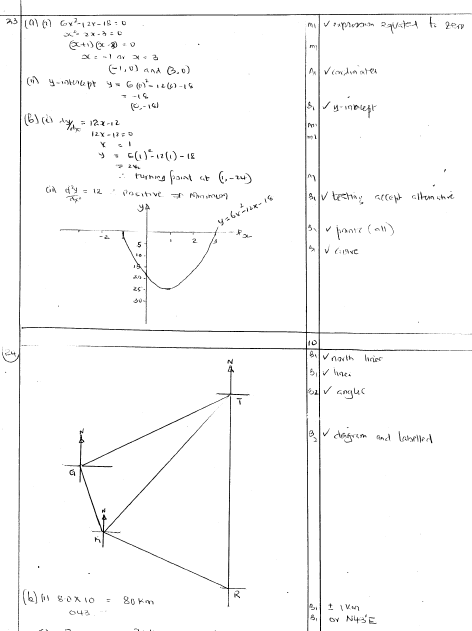 23 (a) (i) 6x² - 12x - 18 = 0 m1 ✓ expression equated to zero
x² - 2x - 3 = 0
(x+1)(x-3) = 0 m1
x = -1 or x = 3
(-1, 0) and (3, 0) A1 ✓ coordinates
(ii) y-intercept y = 6(0)² - 12(0) - 18
= -18 B1 ✓ y-intercept
(0, -18)
(b) (i) dy/dx = 12x - 12 m1
12x - 12 = 0 m1
x = 1
y = 6(1)² - 12(1) - 18
∴ turning point at (1, -24) A1
(ii) d²y/dx² = 12 Positive ⇒ Minimum B1 ✓ testing accept alternative
y y = 6x² - 12x - 18
B1 ✓ points (all)
-2 1 2 3 x
B1 ✓ curve
5
10
15
20
25
30
10
24 B1 ✓ north lines
N B1 ✓ lines
T B2 ✓ angles
N B2 ✓ diagram and labelled
G
N
M
R
(b) (i) 80 x 10 = 80 Km B1 ± 1 Km
043 B1 or N43°E